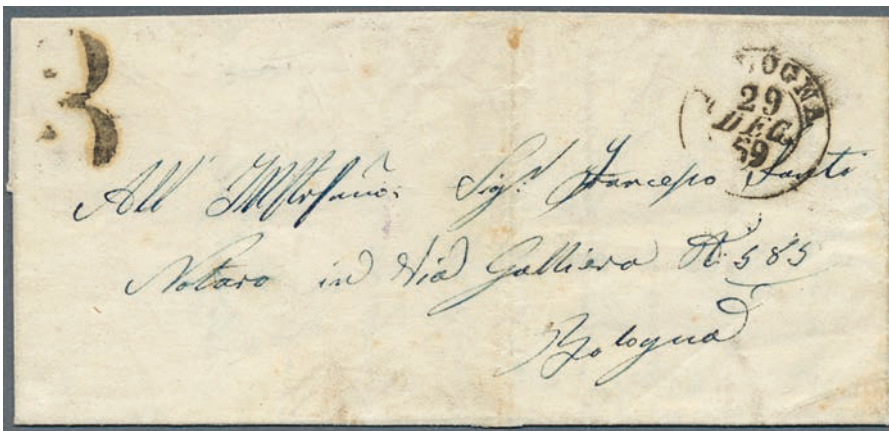 3
BOLOGNA
29
DEC.
59
All' Illmo Sigr. Francesco Santi
Notaro in Via Galliera N. 585
Bologna